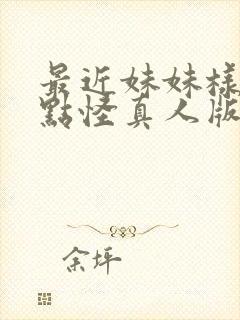 最近妹妹樣
點怪真人版
余坪